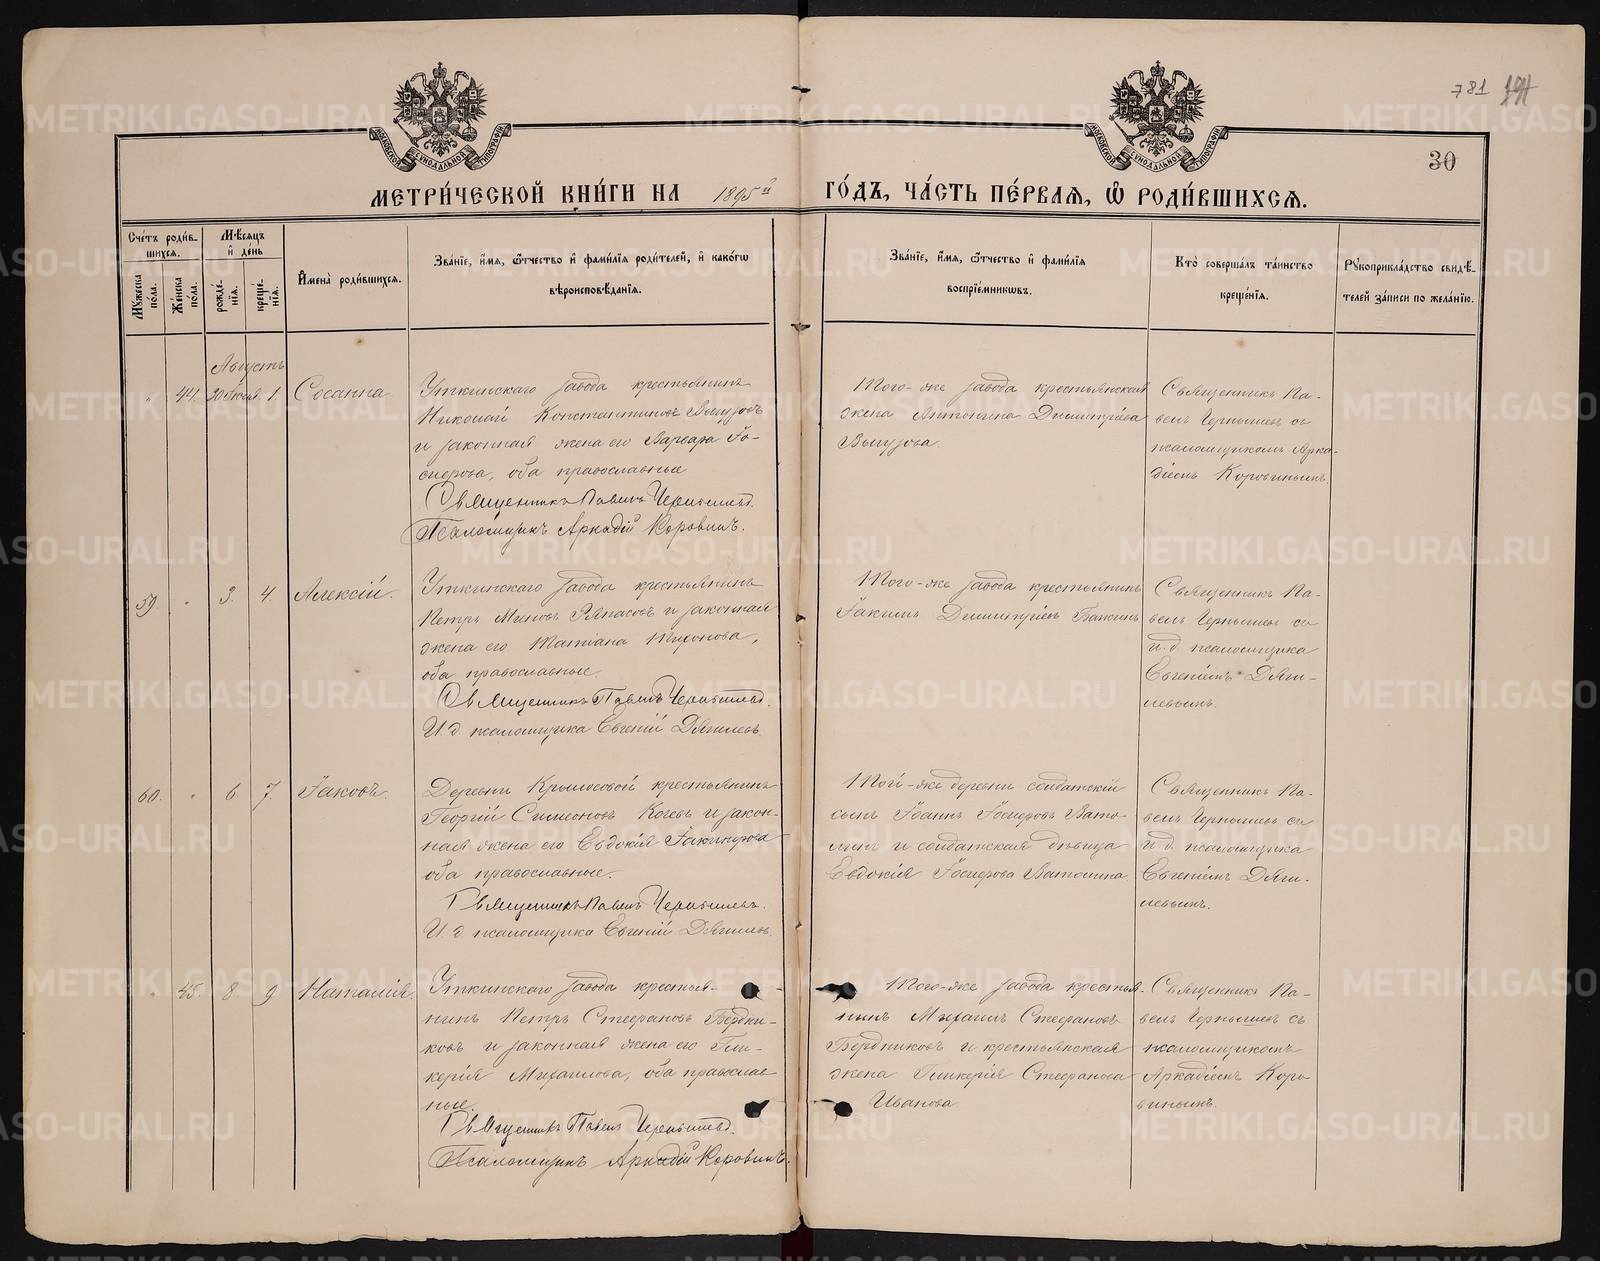 781
30
МЕТРИ́ЧЕСКОЙ КНИ́ГИ НА 1895й ГО́ДЪ, ЧА́СТЬ ПЕ́РВАЯ, Ѡ РОДИ́ВШИХСЯ.
МОСКОВСКОЙ СѴНОДАЛЬНОЙ ТИПОГРАФІИ
МОСКОВСКОЙ СѴНОДАЛЬНОЙ ТИПОГРАФІИ
Сче́тъ роди́в-
шихся.
Мꙋ́жеска по́ла.
Же́нска по́ла.
Мѣ́сяцъ
и҆ де́нь
рожде́-
нїя.
креще́-
нїя.
И҆мена̀ роди́вшихся.
Зва́нїе, и҆́мя, ѻ҆́тчество и҆ фами́лїя роди́телей, и҆ како́гѡ
вѣроисповѣ́данїя.
Зва́нїе, и҆́мя, ѻ҆́тчество и҆ фами́лїя
воспрїе́мникѡвъ.
Кто̀ соверша́лъ та́инство
креще́нїя.
Рꙋкоприкла́дство свидѣ́-
телей за́писи по жела́нїю.
Августъ
" 44. 30 Іюля. 1. Сосанна
Уткинскаго завода крестьянинъ
Николай Константиновъ Выгузовъ
и законная жена его Варвара Іо-
сифова, оба православные
Священникъ Павелъ Чернышевъ.
Псаломщикъ Аркадій Коровинъ.
Того-же завода крестьянская
жена Антонина Димитріева
Выгузова.
Священникъ Па-
велъ Чернышевъ съ
псаломщикомъ Арка-
діемъ Коровинымъ.
59. " 3. 4. Алексій.
Уткинскаго завода крестьянинъ
Петръ Миновъ и законная
жена его Татіана Тихонова,
оба православные.
Священникъ Павелъ Чернышевъ.
И. д. псаломщика Евгеній Дягилевъ.
Того-же завода крестьянинъ
Іакимъ Димитріевъ Банкинъ
Священникъ Па-
велъ Чернышевъ съ
и. д. псаломщика
Евгеніемъ Дяги-
левымъ.
60. " 6. 7. Іаковъ.
Деревни Крылосовой крестьянинъ
Георгій Симеоновъ Кочевъ и закон-
ная жена его Евдокія
оба православные.
Священникъ Павелъ Чернышевъ.
И. д. псаломщика Евгеній Дягилевъ.
Той-же деревни солдатскій
сынъ Іоаннъ Іосифовъ Вато-
линъ и солдатская дѣвица
Евдокія Іосифова Ватолина
Священникъ Па-
велъ Чернышевъ съ
и. д. псаломщика
Евгеніемъ Дяги-
левымъ.
" 45. 8. 9 Наталія.
Уткинскаго завода крестья-
нинъ Петръ Стефановъ Бердни-
ковъ и законная жена его Гли-
керія Михаилова, оба православ-
ные.
Священникъ Павелъ Чернышевъ.
Псаломщикъ Аркадій Коровинъ.
Того-же завода крестья-
нинъ Михаилъ Стефановъ
Бердниковъ и крестьянская
жена Гликерія Стефанова
Иванова
Священникъ Па-
велъ Чернышевъ съ
псаломщикомъ
Аркадіемъ Коро-
винымъ.
METRIKI.GASO-URAL.RU